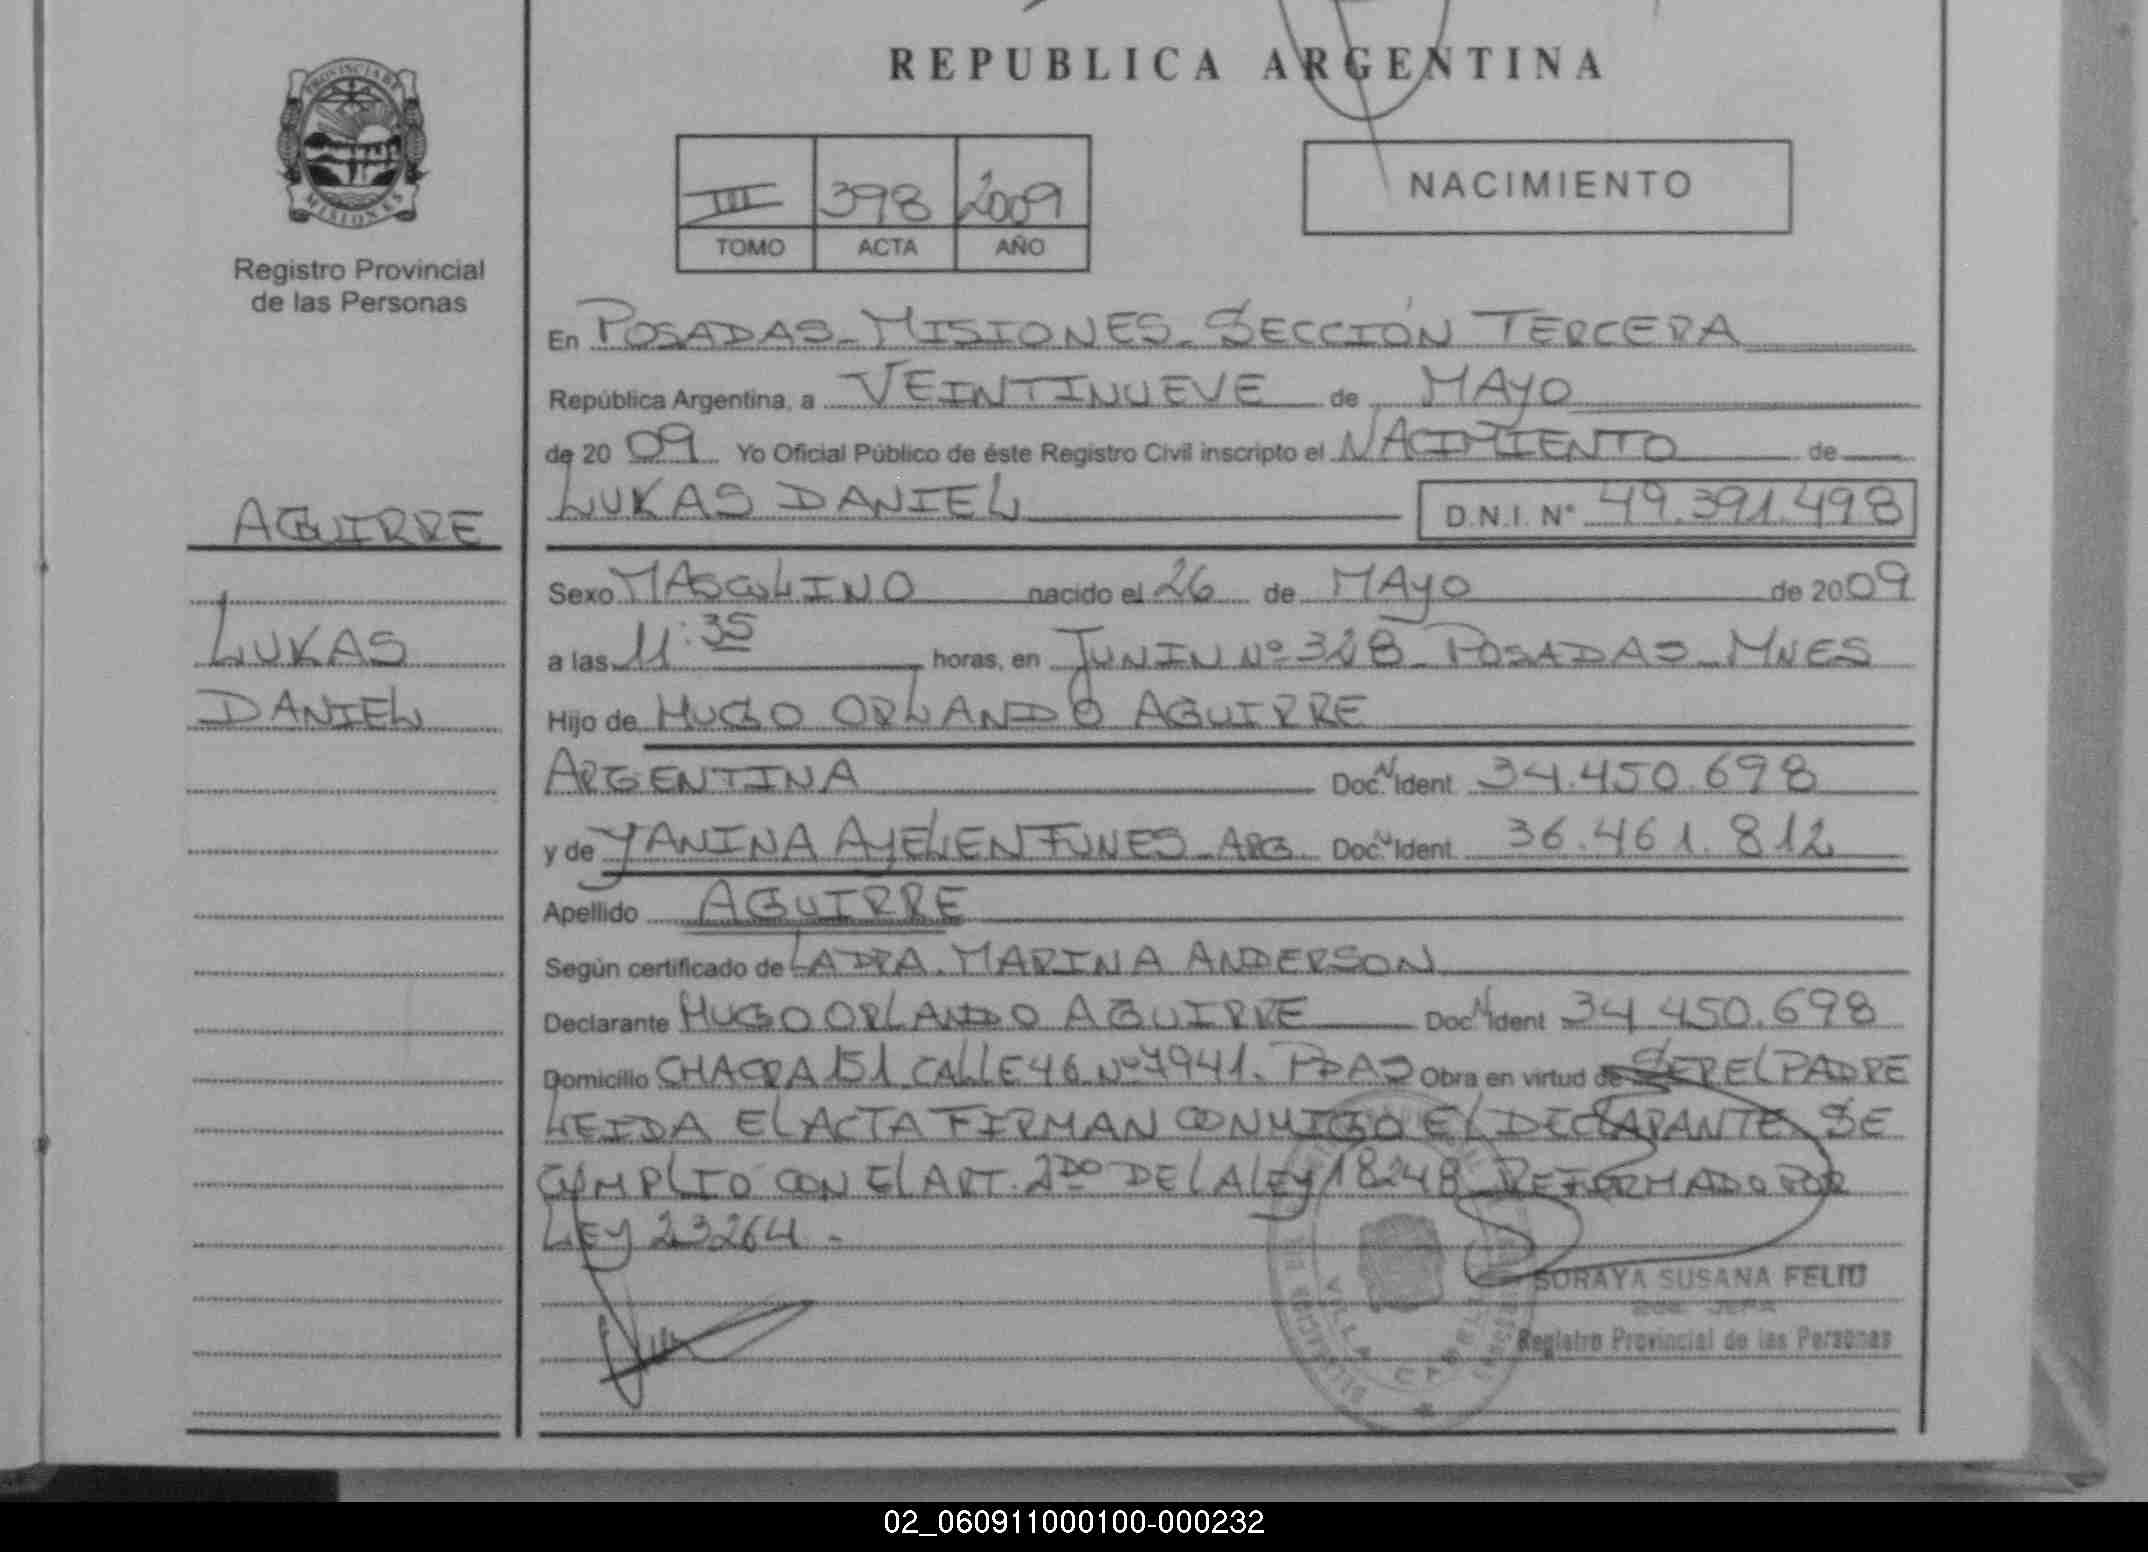 REPUBLICA ARGENTINA
PROVINCIA DE
MISIONES
Registro Provincial
de las Personas
III 398 2009
TOMO ACTA AÑO
NACIMIENTO
En POSADAS - MISIONES - SECCIÓN TERCERA
República Argentina, a VEINTINUEVE de MAYO
de 2009 Yo Oficial Público de éste Registro Civil inscripto el NACIMIENTO de
LUKAS DANIEL D.N.I. Nº 49.391.498
AGUIRRE
LUKAS
DANIEL
Sexo MASCULINO nacido el 26 de MAYO de 2009
a las 11:35 horas, en JUNIN Nº 328 - POSADAS - MNES
Hijo de HUGO ORLANDO AGUIRRE
ARGENTINA Doc. N Ident 34.450.698
y de YANINA AYELEN FUNES - ARG. Doc. N Ident 36.461.812
Apellido AGUIRRE
Según certificado de LA DRA. MARINA ANDERSON
Declarante HUGO ORLANDO AGUIRRE Doc N Ident 34.450.698
Domicilio CHACRA 151 CALLE 46 Nº 7941. PDAS Obra en virtud de SER EL PADRE
LEIDA EL ACTA FIRMAN CONMIGO EL DECLARANTE. SE
CUMPLIO CON EL ART. 2DO DE LA LEY 18248 REFORMADO POR
LEY 23264 -
SORAYA SUSANA FELIU
JEFA
Registro Provincial de las Personas
VILLA CABELLO
02_060911000100-000232